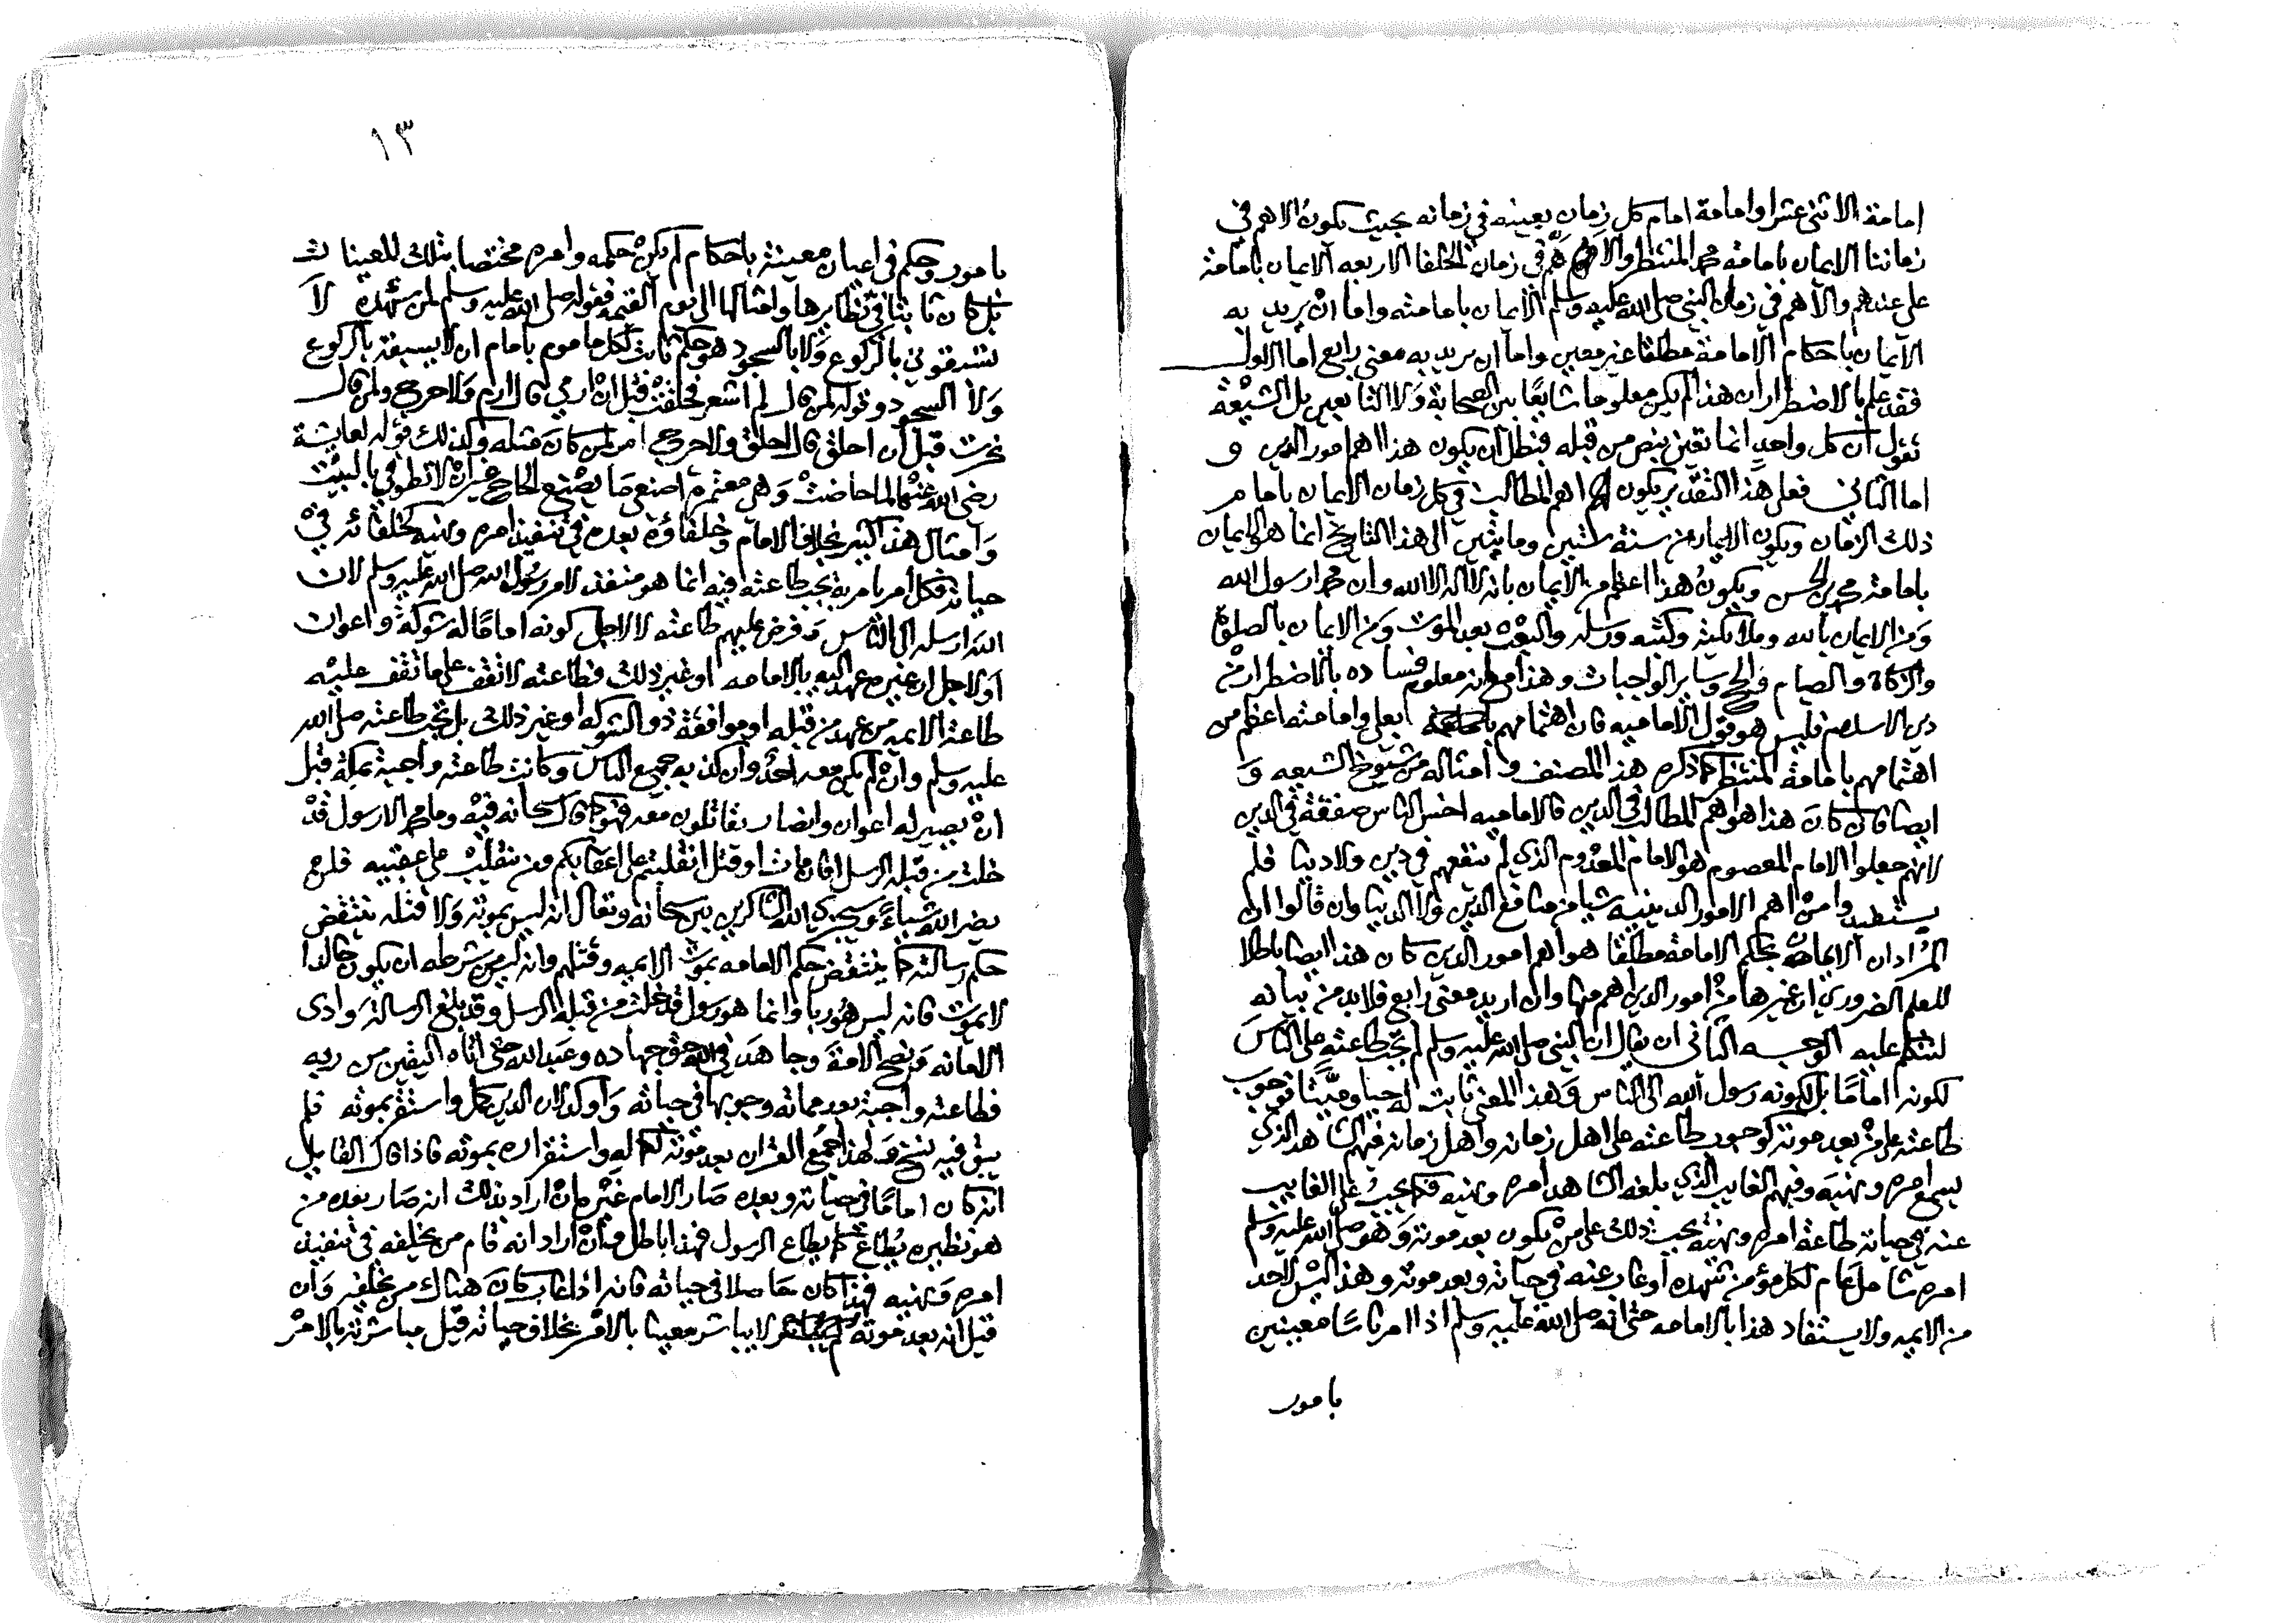 امامة الاثنى عشر او امامة امام كل زمان بعينه في زمانه بحيث يكون الاهم في
زماننا الايمان بامامة محمد المنتظر والاهم في زمان الخلفا الاربعه الايمان بامامة
علي عندهم والاهم في زمان النبي صلى الله عليه وسلم الايمان بامامته واما ان يريد به
الايمان باحكام الامامة مطلقا غير معين واما ان يريد به معنى رابع اما الاول
فقد علم بالاضطرار ان هذا لم يكن معلوما شايعًا بين الصحابة ولا التابعين بل الشيعة
تقول ان كل واحد انما تعين بنص من قبله فبطل ان يكون هذا اهم امور الدين و
اما الثاني فعلى هذا التقدير يكون اهم المطالب في كل زمان الايمان بامام
ذلك الزمان ويكون الايمان من سنة ستين ومايتين الى هذا التاريخ انما هو الايمان
بامامة محمد بن الحسن ويكون هذا اعظم من الايمان بانه لا اله الا الله وان محمدا رسول الله
ومن الايمان بالله وملائكته وكتبه ورسله والبعث بعد الموت ومن الايمان بالصلوة
والزكاة والصيام والحج وساير الواجبات وهذا مع انه معلوم فساده بالاضطرار من
دين الاسلام فليس هو قول الاماميه فان اهتمامهم بعلي وامامته اعظم من
اهتمامهم بامامة المنتظر كما ذكره هذا المصنف وامثاله من شيوخ الشيعه و
ايضا فان كان هذا هو اهم المطالب في الدين فالاماميه اخسر الناس صفقة في الدين
لانهم جعلوا الامام المعصوم هو الامام المعدوم الذي لم ينفعهم في دين ولا دنيا فلم
يستفيدوا من اهم الامور الدينية شيا من منافع الدين ولا الدنيا وان قالوا ان
المراد ان الايمان بحكم الامامة مطلقا هو اهم امور الدين كان هذا ايضا باطلا
للعلم الضروري ان غيرها من امور الدين اهم منها وان اريد معنى رابع فلا بد من بيانه
لنتكلم عليه الوجه الثاني ان يقال ان النبي صلى الله عليه وسلم لم تجب طاعته على الناس
لكونه امامًا بل لكونه رسول الله الى الناس وهذا المعنى ثابت له حيا وميتًا فوجوب
طاعته على من بعد موته كوجوب طاعته على اهل زمانه واهل زمانه فيهم الشاهد الذي
يسمع امره ونهيه وفيهم الغايب الذي بلغه الشاهد امره ونهيه فكما يجب على الغايب
عنه في حياته طاعة امره ونهيه يجب ذلك على من يكون بعد موته وهو صلى الله عليه وسلم
امره شامل عام لكل مؤمن شهده او غاب عنه في حياته وبعد موته وهذا ليس لاحد
من الايمه ولا يستفاد هذا بالامامه حتى انه صلى الله عليه وسلم اذا امر ناسًا معينين
بامور
١٣
بامور وحكم في اعيان معينة باحكام لم يكن حكمه وامره مختصا بتلك المعينات
بل كان ثابتا في نظايرها وامثالها الى يوم القيمه فقوله صلى الله عليه وسلم لمن شهده لا
تسبقوني بالركوع ولا بالسجود هو حكم ثابت لكل ماموم بامام ان لا يسبقه بالركوع
ولا السجود وقوله لمن قال لم اشعر فحلقت قبل ان ارمي قال ارم ولا حرج ولمن قال
نحرت قبل ان احلق قال احلق ولا حرج امر لمن كان مثله وكذلك قوله لعايشة
رضي الله عنها لما حاضت وهي معتمرة اصنعي ما يصنع الحاج غير ان لا تطوفي بالبيت
وامثال هذا كثير بخلاف الامام وخلفاؤه بعده في تنفيذ امره ونهيه كخلفائه في
حياته فكل آمر بامر به يجب طاعته فيه انما هو منفذ لامر رسول الله صلى الله عليه وسلم لان
الله ارسله الى الناس وفرض عليهم طاعته لا لاجل كونه امامًا له شوكة واعوان
او لاجل ان غيره عهد اليه بالامامه او غير ذلك فطاعته لا تقف على ما تقف عليه
طاعة الايمه من عهد من قبله او موافقة ذو الشوكه او غير ذلك بل تجب طاعته صلى الله
عليه وسلم وان لم يكن معه احد وان كذبه جميع الناس وكانت طاعته واجبة بمكة قبل
ان يصير له اعوان وانصار يقاتلون معه فهو كما قال سبحانه فيه وما محمد الا رسول قد
خلت من قبله الرسل افان مات او قتل انقلبتم على اعقابكم ومن ينقلب على عقبيه فلن
يضر الله شياءً وسيجزي الله الشاكرين بين سبحانه وتعالى انه ليس بموته ولا قتله ينتقض
حكم رسالته كما ينتقض حكم الامامه بموت الايمه وقتلهم وانه ليس من شرطه ان يكون خالدا
لا يموت فانه ليس هو ربا وانما هو رسول قد خلت من قبله الرسل وقد بلغ الرسالة وادى
الامانه ونصح الامة وجاهد في الله حق جهاده وعبد الله حتى اتاه اليقين من ربه
فطاعته واجبة بعد مماته وجوبها في حياته واوكد لان الدين كمل واستقر بموته فلم
يبق فيه نسخ ولهذا جمع القران بعد موته لكماله واستقراره بموته فاذا قال القايل
انه كان امامًا في حياته وبعده صار الامام غيره ان اراد بذلك انه صار بعده من
هو نظيره يُطاع كما يطاع الرسول فهذا باطل وان اراد انه قام من يخلفه في تنفيذ
امره ونهيه فهذا كان حاصلا في حياته فانه اذا غاب كان هناك من يخلفه وان
قيل انه بعد موته لا يباشر معينا بالامر بخلاف حياته قيل مباشرته بالامر